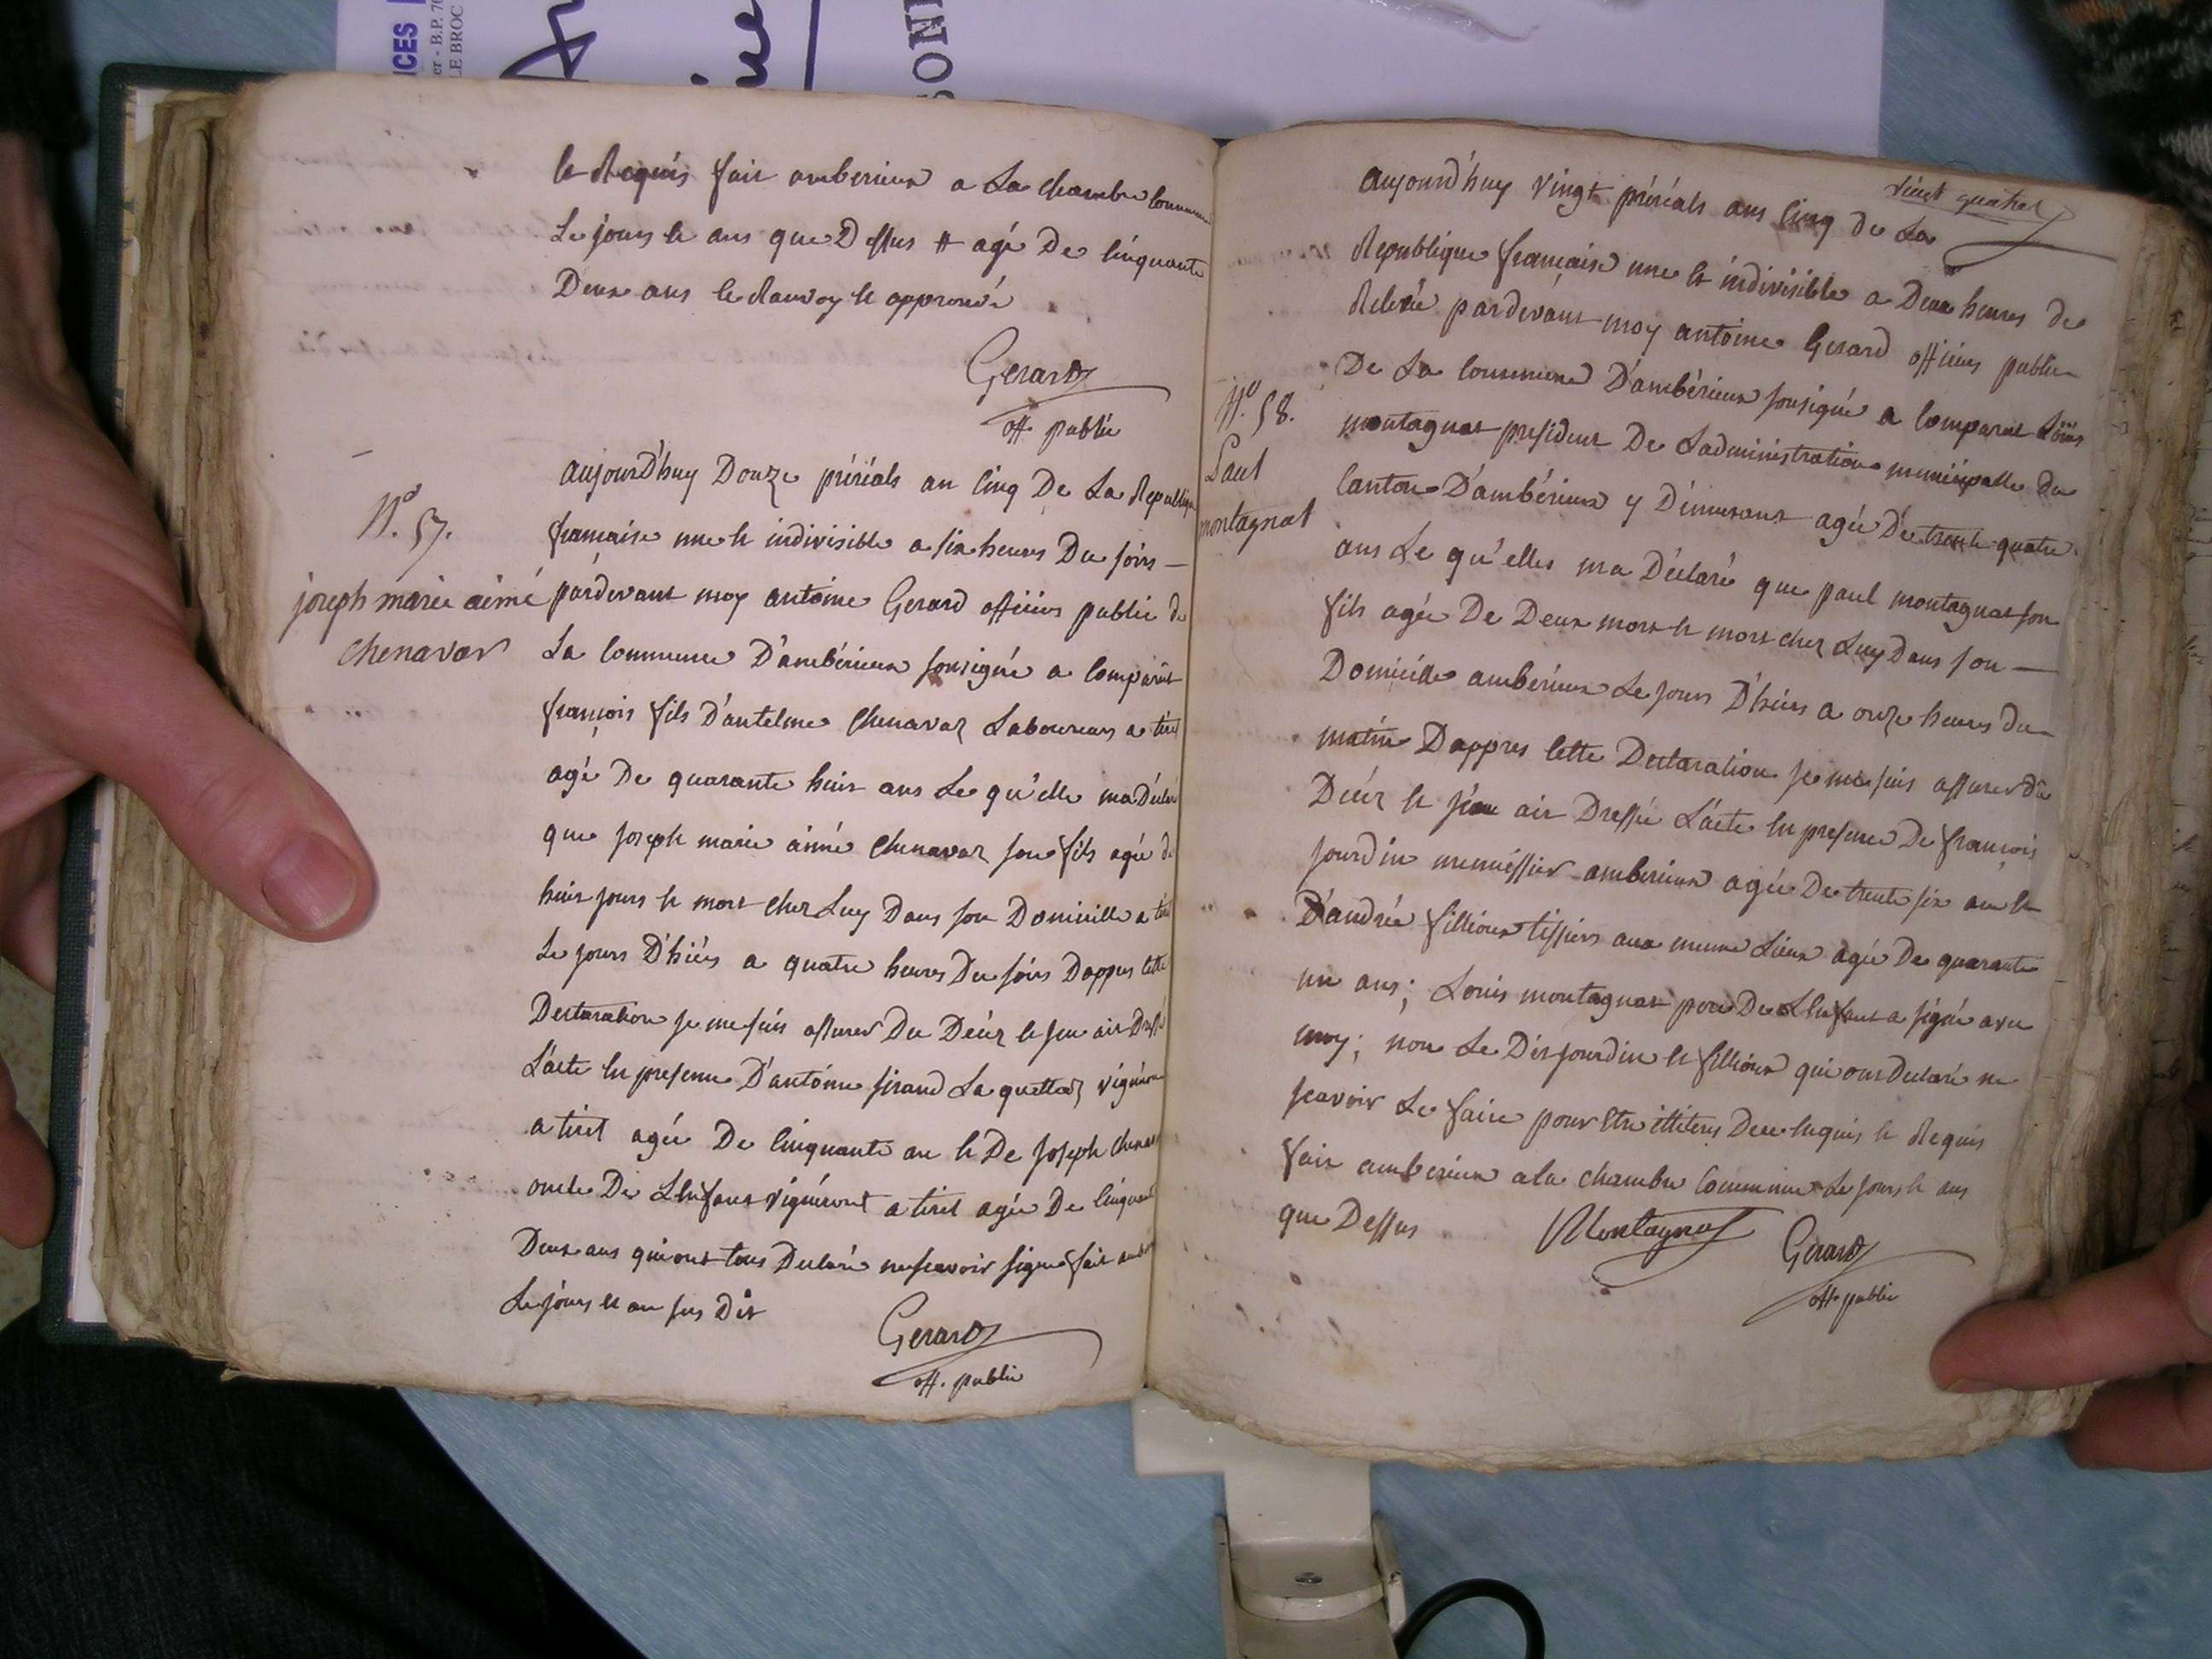 ICES
er - B.P. 70
LE BROC
SONN
et Requis fait amberieux a La chambre commune
Le jours et ans que Dessus # agé De cinquante
Deux ans le Ranvoy et approuvé
Gerard
off. public
N.º 57.
joseph marie aimé
chenavar
aujourD'huy Douze préréals an cinq De La Republique
francaise une et indivisible a six heures Du soirs —
pardevant moy antoine Gerard officies public de
La commune D'ambérieux sousigné a comparut
françois fils D'antelme chenavaz Laboureurs a tiret
agé De quarante huit ans Le qu'elle ma Déclaré
que joseph marie aimé chenavaz son fils agée de
huit jours et mort chez Luy Dans son Domicille a tiret
Le jours D'hiérs a quatre heures Du soirs Dappres cette
Declaration je me suis assurer Du Décéz et jen ait Dressé
L'acte en presence D'antoine sirand La quettaz vigneron
a tiret agée De cinquante an et De joseph chenavar
oncle De L'enfant vignéront a tiret agée De cinquante
Deux ans qui ont tous Declaré ne scavoir signe fait
Le jours et an sus Dit
Gerard
off. public
vingt quatres
aujourd'huy vingt préréals ans cinq de La
Republique francaise une et indivisible a Deux heures de
Relevée pardevant moy antoine Gerard officies public
De La commune D'ambérieux sousigné a comparut Loüis
N.º 58.
Paul
montagnat
montagnat president De Ladministration municipalle du
canton D'ambérieux y Démurant agée De trente quatre
ans Le qu'elles ma Déclaré que paul montagnat son
fils agée De Deux mort et mort chez Luy Dans son —
Domicille ambérieux Le jours D'hiers a onze heures du
matin Dappres cette Declaration je me suis assurer Du
Décéz et j'en ait Dressée L'acte en presence De françois
jourdin menuissier amberieux agée De trente six an et
D'andrée fillioux tissiers aux meme Lieux agée De quarante
un ans; Louis montagnat pere De L'enfant a signé avec
moy; non Le Dit jourdin et fillioux qui ont Declaré ne
scavoir Le faire pour être illiteres De ce enquis et Requis
fait amberieux a la chambre commune Le jours et ans
que Dessus
Montagnat
Gerard
off. public